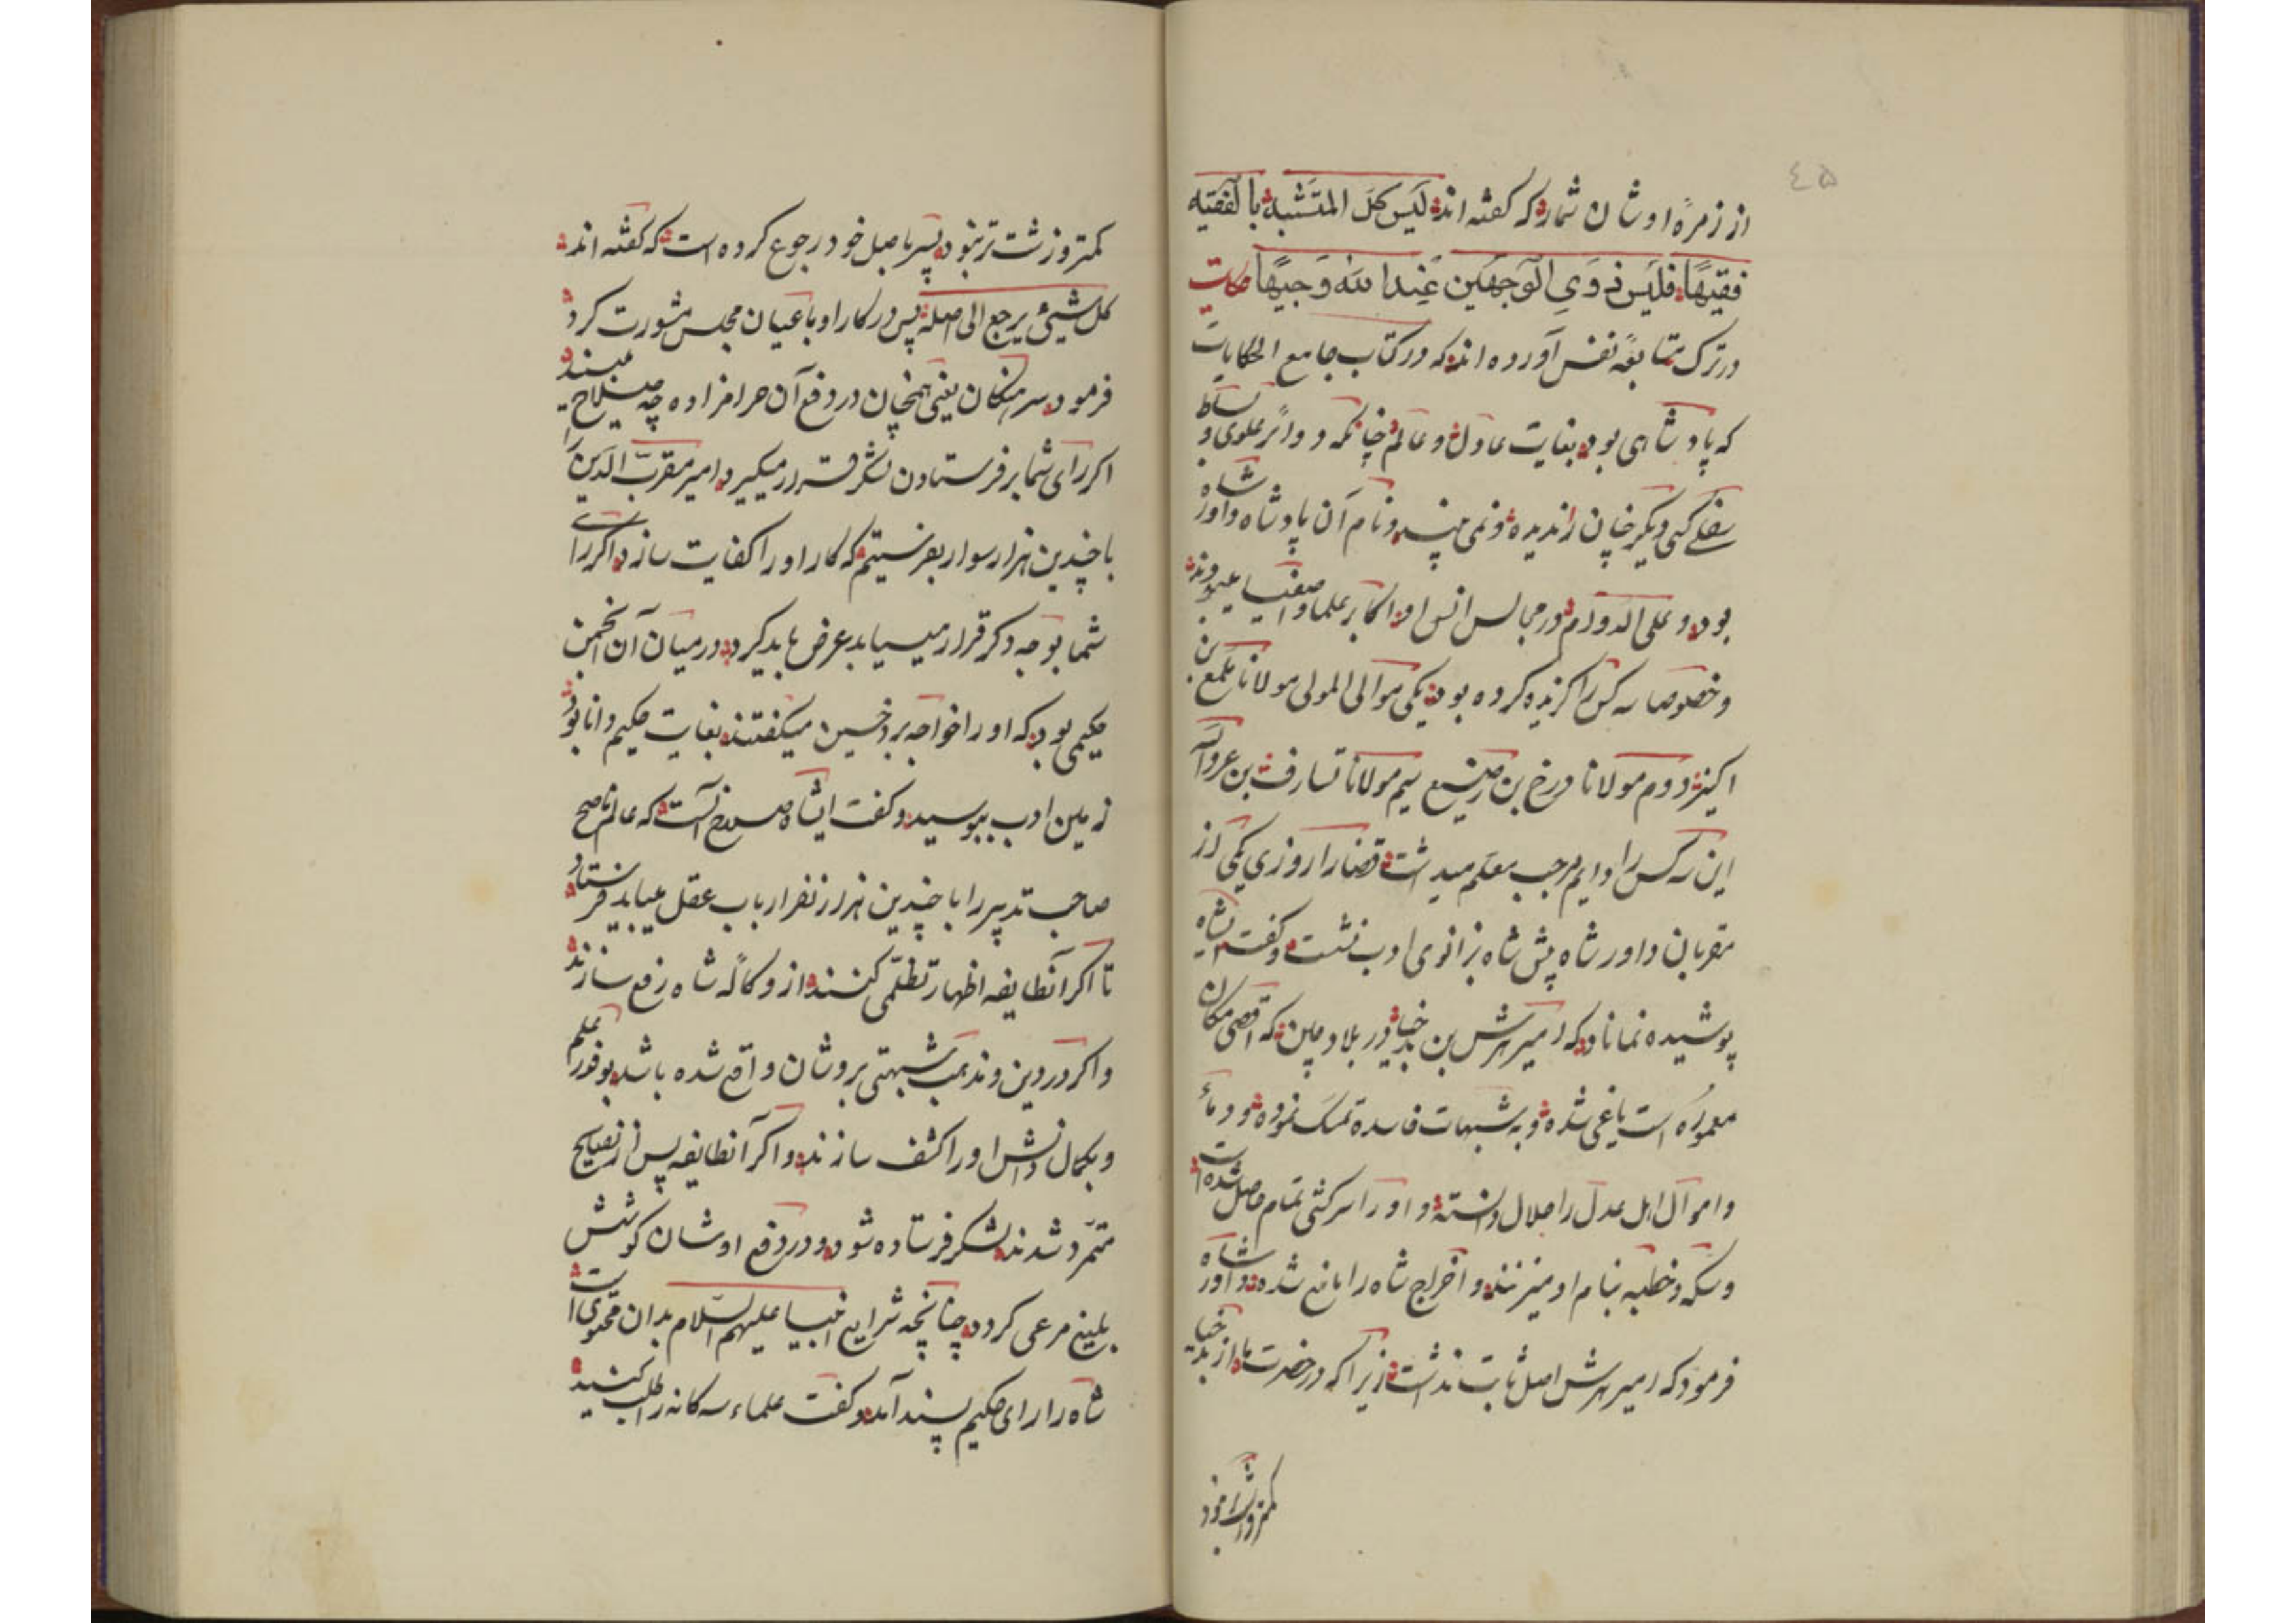 ۴۵
از زمرهٔ اوشان شمارد که کفته اند لَیسَ کلّ المتَشَبه بالفَقیه
فقیهًا فَلَیسَ ذَوِی الوَجهَین عِندَ اللّه وَجیهًا حکایت
در ترک متابعهٔ نفس آورده اند که در کتاب جامع الحکایات
که پادشاهی بود بغایت عادل و عالم چنانکه دوائر علوی و بساط
سفلی کسی دیکر چنان را ندیده و نمی بیند و نام آن پادشاه داور شاه
بود و علی الدوام در مجالس انس او اکابر علما و اصفیا میبودند
و خصوصا سه کس را کزیده کرده بود یکی موالی المولی مولانا ملمع بن
اکنیز دوم مولانا درخ بن رضیع سیم مولانا تسارف بن عروآ
این سه کس را دایم مرجب معلم میداشت قضا را روزی یکی از
مقربان داور شاه پیش شاه بزانوی ادب نشست و کفت ایشاه
پوشیده نماناد که امیر سرش بن بدخبا در بلاد چین که اقصی مکان
معموره است یاغی شده و به شبهات فاسده تمسک نموده و دماء
و اموال اهل عدل را حلال دانسته و او را سرکشی تمام حاصل شده است
و سکه و خطبه بنام او میزنند و اخراج شاه را مانع شده داور شاه
فرمود که امیر سرش اصل ثابت نداشت زیرا که در حضرت ما از بدخبا
کمتر و زشت تر نبود
کمتر و زشت تر نبود پس باصل خود رجوع کرده است که کفته اند
کل شیئ یرجع الی اصله پس در کار او با عیان مجلس مشورت کرد
فرمود سرهنکان یغنی همچنان در دفع آن حرامزاده چه صلاح میبیند
اکر رای شما بر فرستادن لشکر قرار میکیرد امیر مقرب الدین را
با چندین هزار سوار بفرستیم که کار او را کفایت سازد و اکر رای
شما بوجه دکر قرار میـیابد عرض باید کرد در میان آن انجمن
حکیمی بود که او را خواجه بردخسین میکفتند بغایت حکیم و دانا بود
زمین ادب ببوسید و کفت ایشاه صلاح آنست که عالم ناصح
صاحب تدبیر را با چندین هزار نفر ارباب عقل میباید فرستاد
تا اکر آنطایفه اظهار تظلّمی کنند از وکلاء شاه رفع سازند
و اکر در دین و مذهب شبهتی بروشان واقع شده باشد بوفور علم
و بکمال دانش او را کشف سازند و اکر آنطایفه پس از نصایح
متمرّد شدند لشکر فرستاده شود و در دفع اوشان کوشش
بلیغ مرعی کردد چنانچه شرایع انبیا علیهم السّلام بدان محتوی است
شاه را رای حکیم پسند آمد و کفت علماء سه کانه را طلب کنید